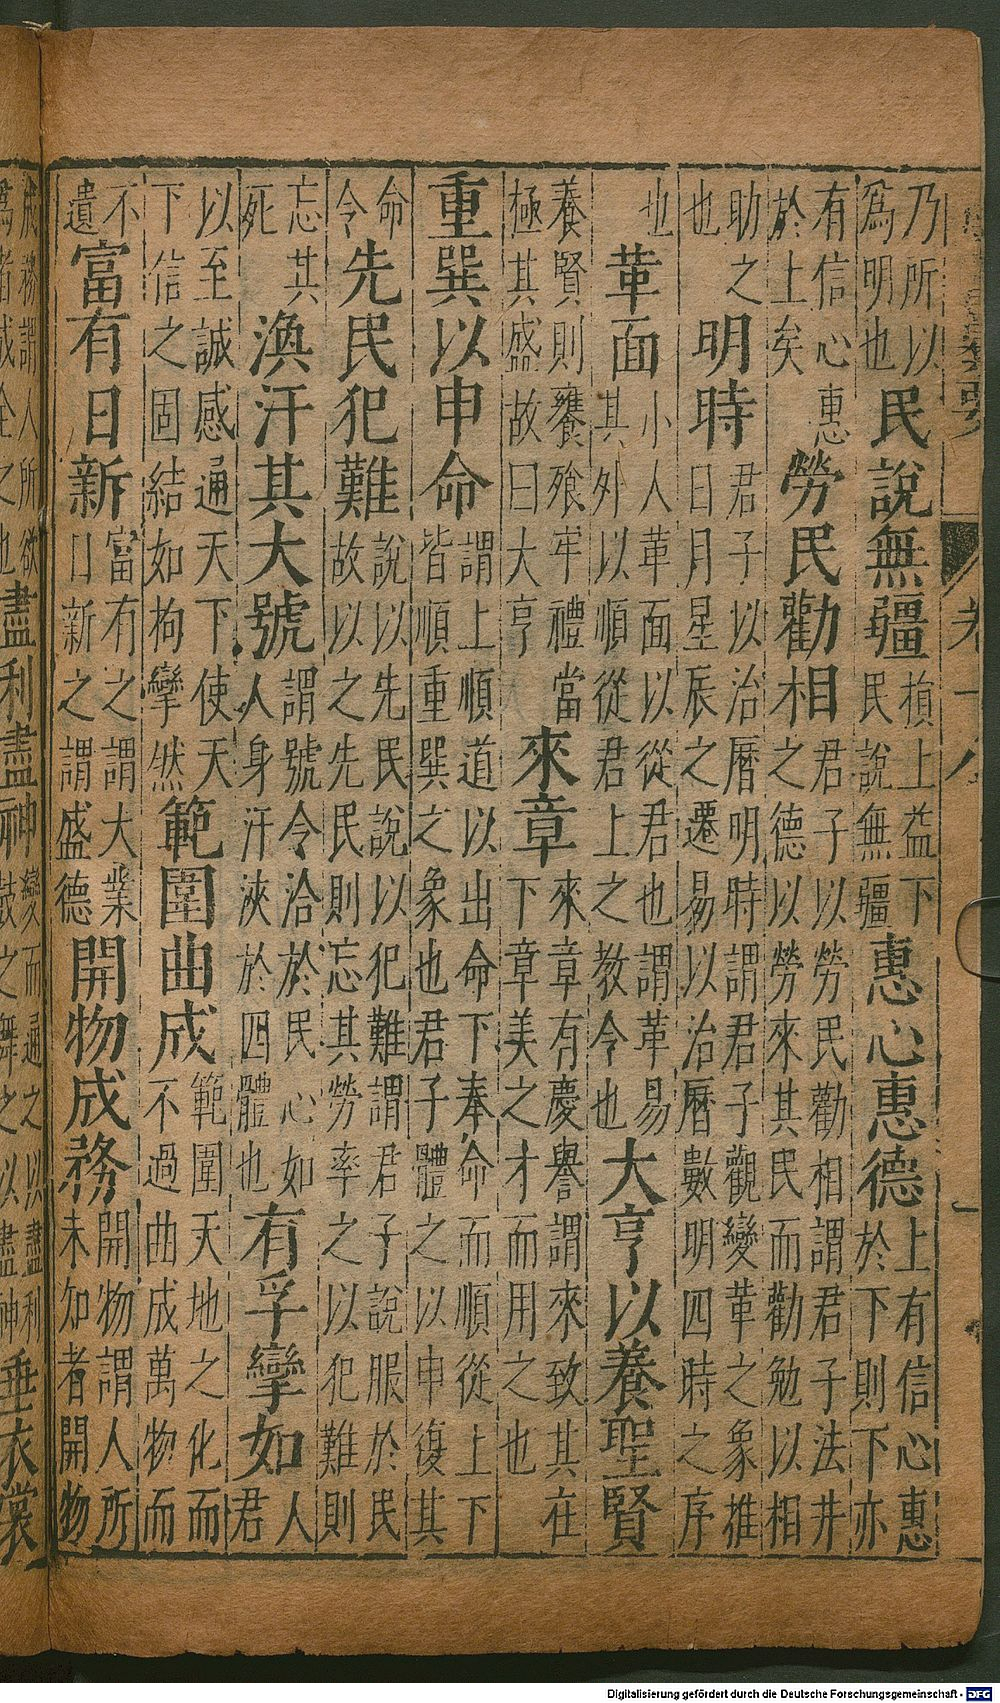 卷十八
一
乃所以
為明也
民說無疆
損上益下
民說無疆
惠心惠德
上有信心惠
於下則下亦
有信心惠
於上矣
勞民勸相
君子以勞民勸相謂君子法井
之德以勞來其民而勸勉以相
助之
也
明時
君子以治曆明時謂君子觀變革之象推
日月星辰之遷易以治曆數明四時之序
也
革面
小人革面以從君也謂革易
其外以順從君上之教令也
大亨以養聖賢
養賢則饔飧牢禮當
極其盛故曰大亨
來章
來章有慶譽謂來致其在
下章美之才而用之也
重巽以申命
謂上順道以出命下奉命而順從上下
皆順重巽之象也君子體之以申復其
命
令
先民犯難
說以先民說以犯難謂君子說服於民
故以之先民則忘其勞率之以犯難則
忘其
死
渙汗其大號
謂號令洽於民心如
人身汗浹於四體也
有孚攣如
人
君
以至誠感通天下使天
下信之固結如拘攣然
範圍曲成
範圍天地之化而
不過曲成萬物而
不
遺
富有日新
富有之謂大業
日新之謂盛德
開物成務
開物謂人所
未知者開物
成務謂人所欲
爲者成全之也
盡利盡神
變而通之以盡利
鼓之舞之以盡神
垂衣裳
Digitalisierung gefördert durch die Deutsche Forschungsgemeinschaft - DFG